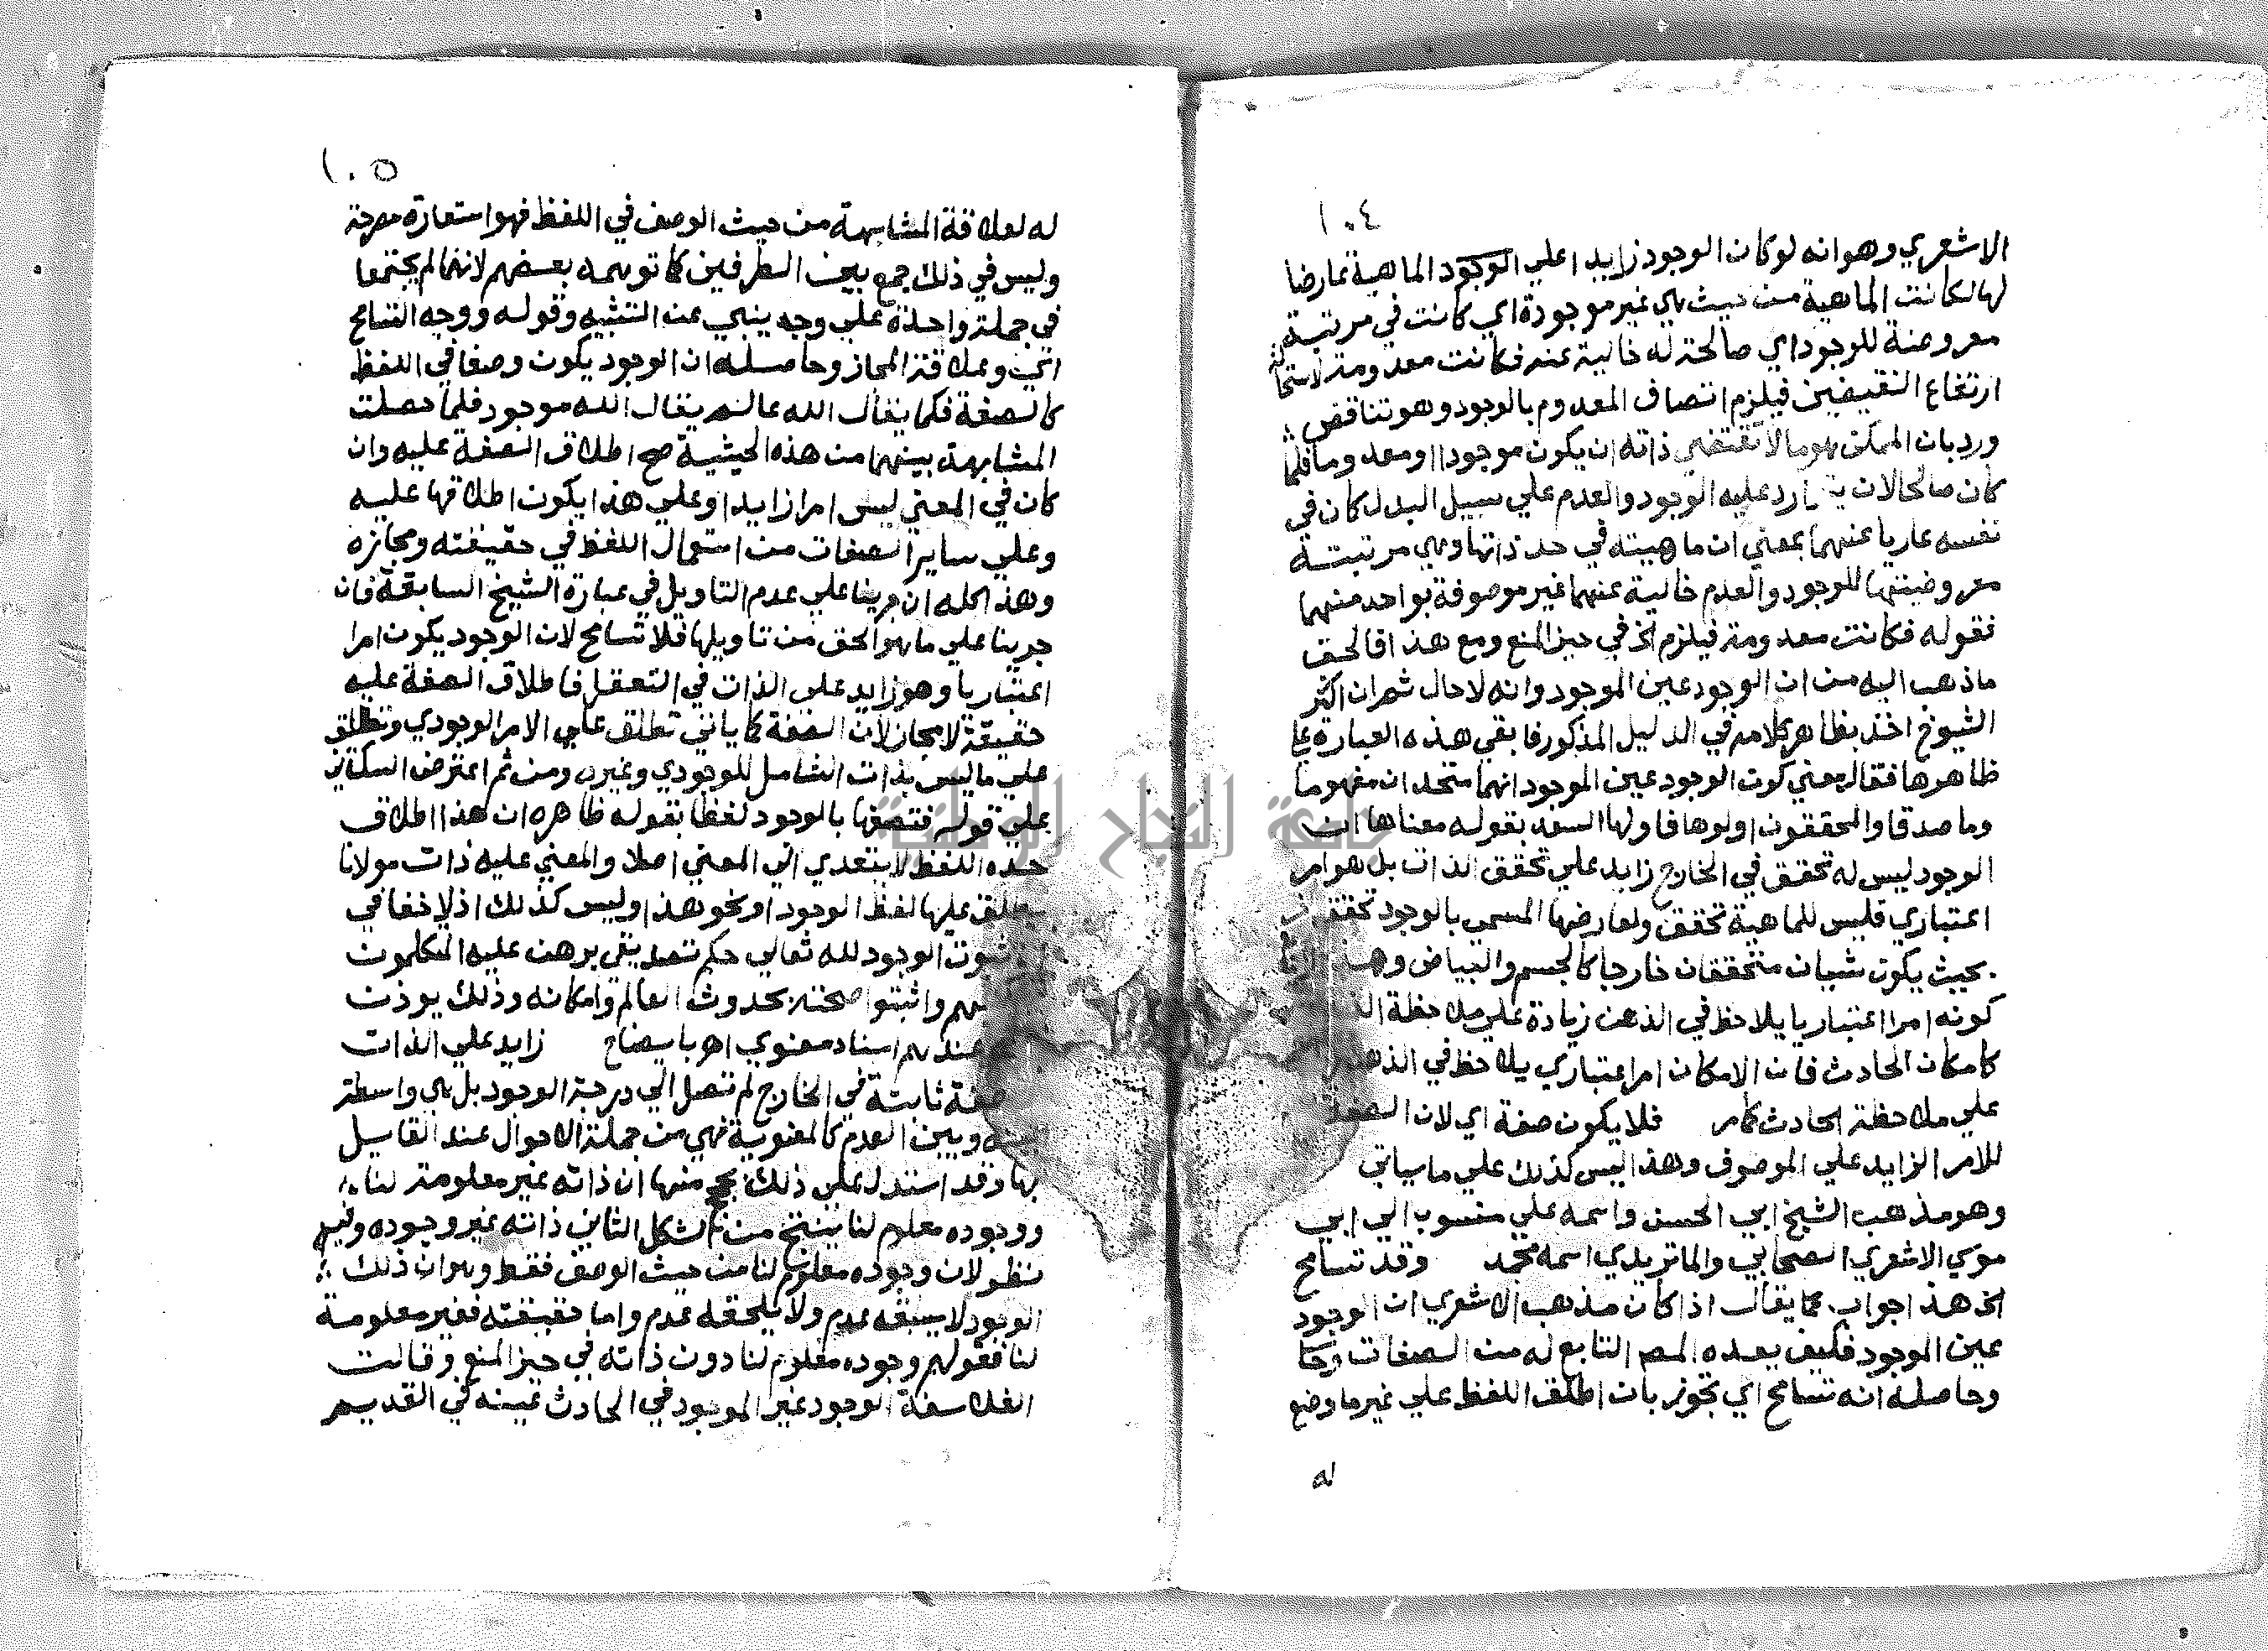 ١٠٤
الاشعري وهو انه لو كان الوجود زايدا علي الوجود الماهية عارضا
لها لكانت الماهية من حيث هي غير موجودة اي كانت في مرتبة
معروضة للوجود اي صالحة له خالية عنه فكانت معدومة لاستحالة
ارتفاع النقيضين فيلزم اتصاف المعدوم بالوجود وهو تناقض
ورد بان الممكن هو ما لا تقتضي ذاته ان يكون موجودا او معدوما فلما
كان صالحا لان رد عليه الوجود والعدم علي سبيل البدل كان في
نفسه عاريا عنهما بمعني ان ماهيته في حد ذاتها وهي مرتبة
معروضيتها للوجود والعدم خالية عنهما غير موصوفة بواحد منهما
فقوله فكانت معدومة فيلزم الخ في حيز المنع ومع هذا فالحق
ما ذهب اليه من ان الوجود عين الموجود وانه لا حال ثم ان اكثر
الشيوخ اخذ بظاهر كلامه في الدليل المذكور فابقي هذه العبارة علي
ظاهرها فقال معني كون الوجود عين الموجود انهما متحدان مفهوما
وما صدقا والمحققون اولوها فاولها السعد بقوله معناها ان
الوجود ليس له تحقق في الخارج زايد علي تحقق الذات بل هو امر
اعتباري فليس للماهية تحقق ولعارضها المسمي بالوجود تحقق
بحيث يكون شيان متحققان خارجا كالجسم والبياض وهذا
كونه امرا اعتباريا يلاحظ في الذهن زيادة علي ملاحظة
كامكان الحادث فان الامكان امر اعتباري يلاحظ في الذهن
علي ملاحظة الحادث كما مر فلا يكون صفة اي لان الصفة
للامر الزايد علي الموصوف وهذا ليس كذلك علي ما سياتي
وهو مذهب الشيخ ابي الحسن واسمه علي منسوب الي ابي
موسي الاشعري الصحابي والماتريدي اسمه محمد وقد تسامح
الخ هذا جواب عما يقال اذا كان مذهب الاشعري ان الوجود
عين الموجود فكيف يعده المصر التابع له من الصفات وحا
وحاصله انه تسامح اي تجوز بان اطلق اللفظ علي غير ما وضع
له
١٠٥
له لعلاقة المشابهة من حيث الوصف في اللفظ فهو استعارة مصرحة
وليس في ذلك جمع بين الطرفين كما توهمه بعضهم لانهما لم يجتمعا
في جملة واحدة علي وجه ينبي عن التشبيه وقوله ووجه التسامح
اي وعلاقة المجاز وحاصله ان الوجود يكون وصفا في اللفظ
كالصفة فكما يقال الله عالم يقال الله موجود فلما حصلت
المشابهة بينهما من هذه الحيثية صح اطلاق الصفة عليه وان
كان في المعني ليس امرا زايدا وعلي هذا يكون اطلاقها عليه
وعلي ساير الصفات من استعمال اللفظ في حقيقته ومجازه
وهذا كله ان جرينا علي عدم التاويل في عبارة الشيخ السابقة فان
جرينا علي ما هو الحق من تاويلها فلا تسامح لان الوجود يكون امرا
اعتباريا وهو زايد علي الذات في التعقل فاطلاق الصفة عليه
حقيقة لا مجاز لان الصفة كما ياتي تطلق علي الامر الوجودي وتطلق
علي ما ليس بذات الشامل للوجودي وغيره ومن ثم اعترض السكتاني
علي قوله فتصفها بالوجود لفظا بقوله ظاهره ان هذا اطلاق
حده اللفظ لا يتعدي الي المعني اصلا والمعني عليه ذات مولانا
يطلق عليها لفظ الوجود او نحو هذا وليس كذلك اذ لا خفا في
ان ثبوت الوجود لله تعالي حكم تصديقي برهن عليه المتكلمون
واثبتوا صحته بحدوث العالم وامكانه وذلك يوذن
عندهم اسناد معنوي اهـ بايضاح زايد علي الذات
صفة ثابتة في الخارج لم تصل الي درجة الوجود بل هي واسطة
بينه وبين العدم كالمعنوية فهي من جملة الاحوال عند القايل
بها وقد استدل علي ذلك بحجج منها ان ذاته غير معلومة لنا
ووجوده معلوم لنا ينتج من الشكل الثاني ذاته غير وجوده وفيه
نظر لان وجوده معلوم لنا من حيث الوصف فقط وهو ان ذلك
الوجود لا يسبقه عدم ولا يلحقه عدم واما حقيقته فغير معلومة
لنا فقولهم وجوده معلوم لنا دون ذاته في حيز المنع وقالت
الفلاسفة الوجود غير الموجود في الحادث عينه في القديم
جامعة النجاح الوطنية